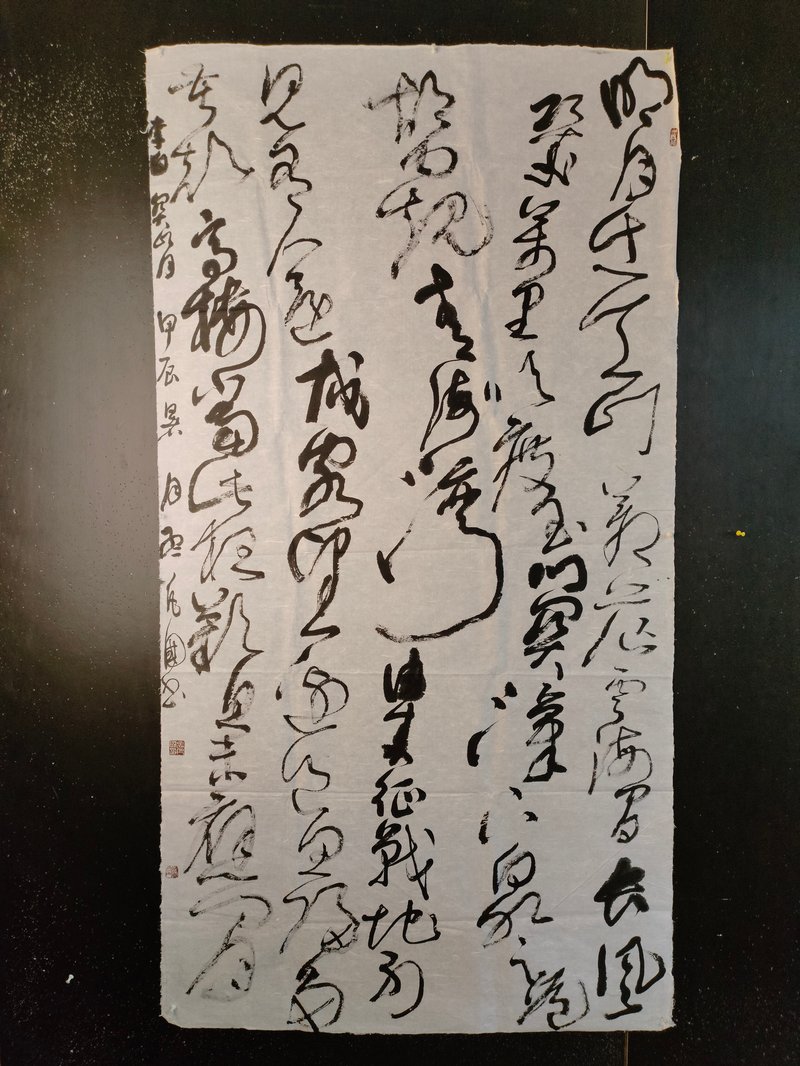 明月出天山蒼茫雲海間長風
幾萬里吹度玉門關漢下白登道
胡窺青海灣由來征戰地不
見有人還戍客望邊邑思歸多
苦顏高樓當此夜歎息未應閒
李白關山月甲辰暑月國書